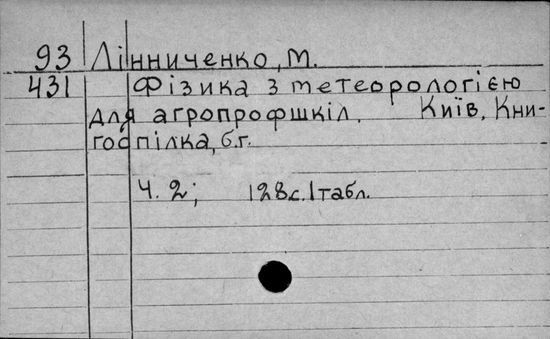 93 Лінниченко, М.
431 Фізика з метеорологією
для агропрофшкіл. Київ, Кни-
госпілка, б.г.
Ч. 2; 128с. 1табл.